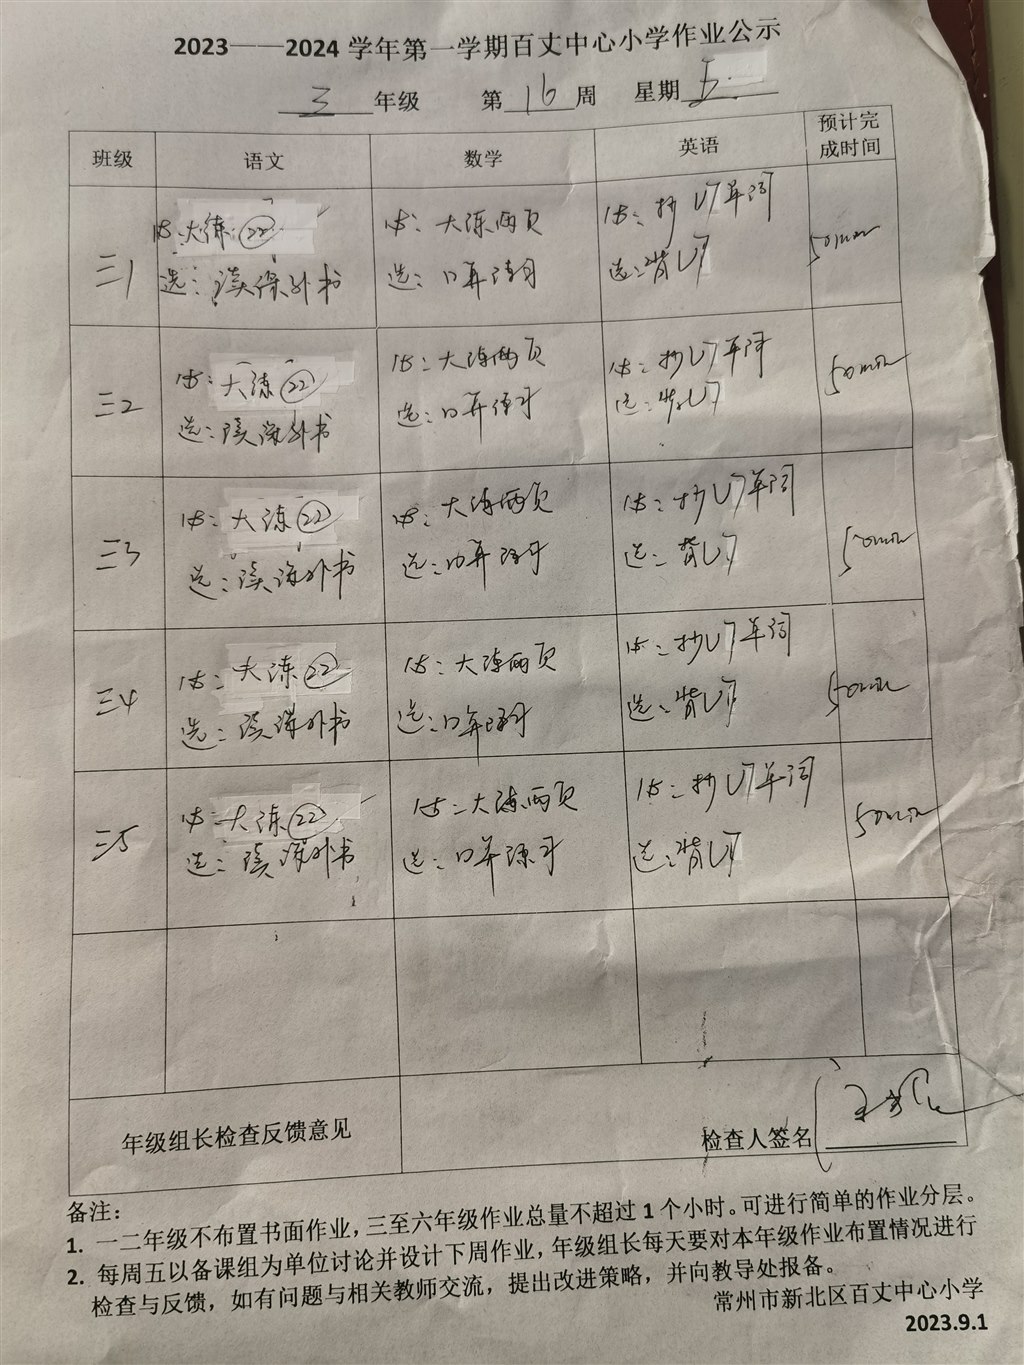 2023——2024 学年第一学期百丈中心小学作业公示
三 年级 第 16 周 星期 五
班级 语文 数学 英语 预计完成时间
三1 必：大练㉒ 必：大练两页 必：抄U7单词 50min
选：读课外书 选：口算 选：背U7
三2 必：大练㉒ 必：大练两页 必：抄U7单词 50min
选：读课外书 选：口算 选：背U7
三3 必：大练㉒ 必：大练两页 必：抄U7单词 50min
选：读课外书 选：口算 选：背U7
三4 必：大练㉒ 必：大练两页 必：抄U7单词 50min
选：读课外书 选：口算 选：背U7
三5 必：大练㉒ 必：大练两页 必：抄U7单词 50min
选：读课外书 选：口算 选：背U7
年级组长检查反馈意见 检查人签名
备注：
1. 一二年级不布置书面作业，三至六年级作业总量不超过 1 个小时。可进行简单的作业分层。
2. 每周五以备课组为单位讨论并设计下周作业，年级组长每天要对本年级作业布置情况进行
检查与反馈，如有问题与相关教师交流，提出改进策略，并向教导处报备。
常州市新北区百丈中心小学
2023.9.1